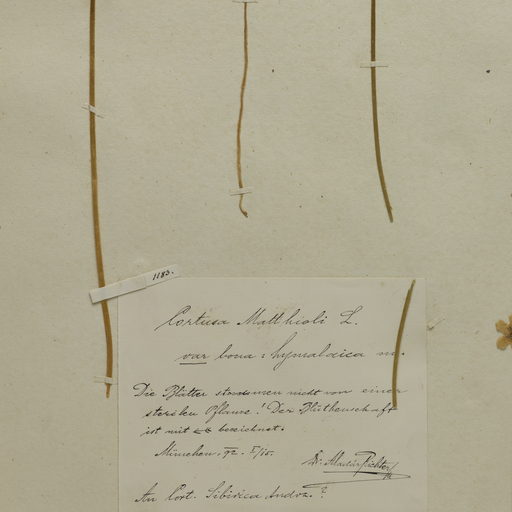 1183.
Cortusa Matthioli L.
var bona : hymalaica m.
Die Blätter stammen nicht von einer
sterilen Pflanze! Der Blüthenschaft
ist mit bezeichnet.
München. 92. I/15.
Dr. Aladár Richter
An Cort. Sibirica Andrz. ?